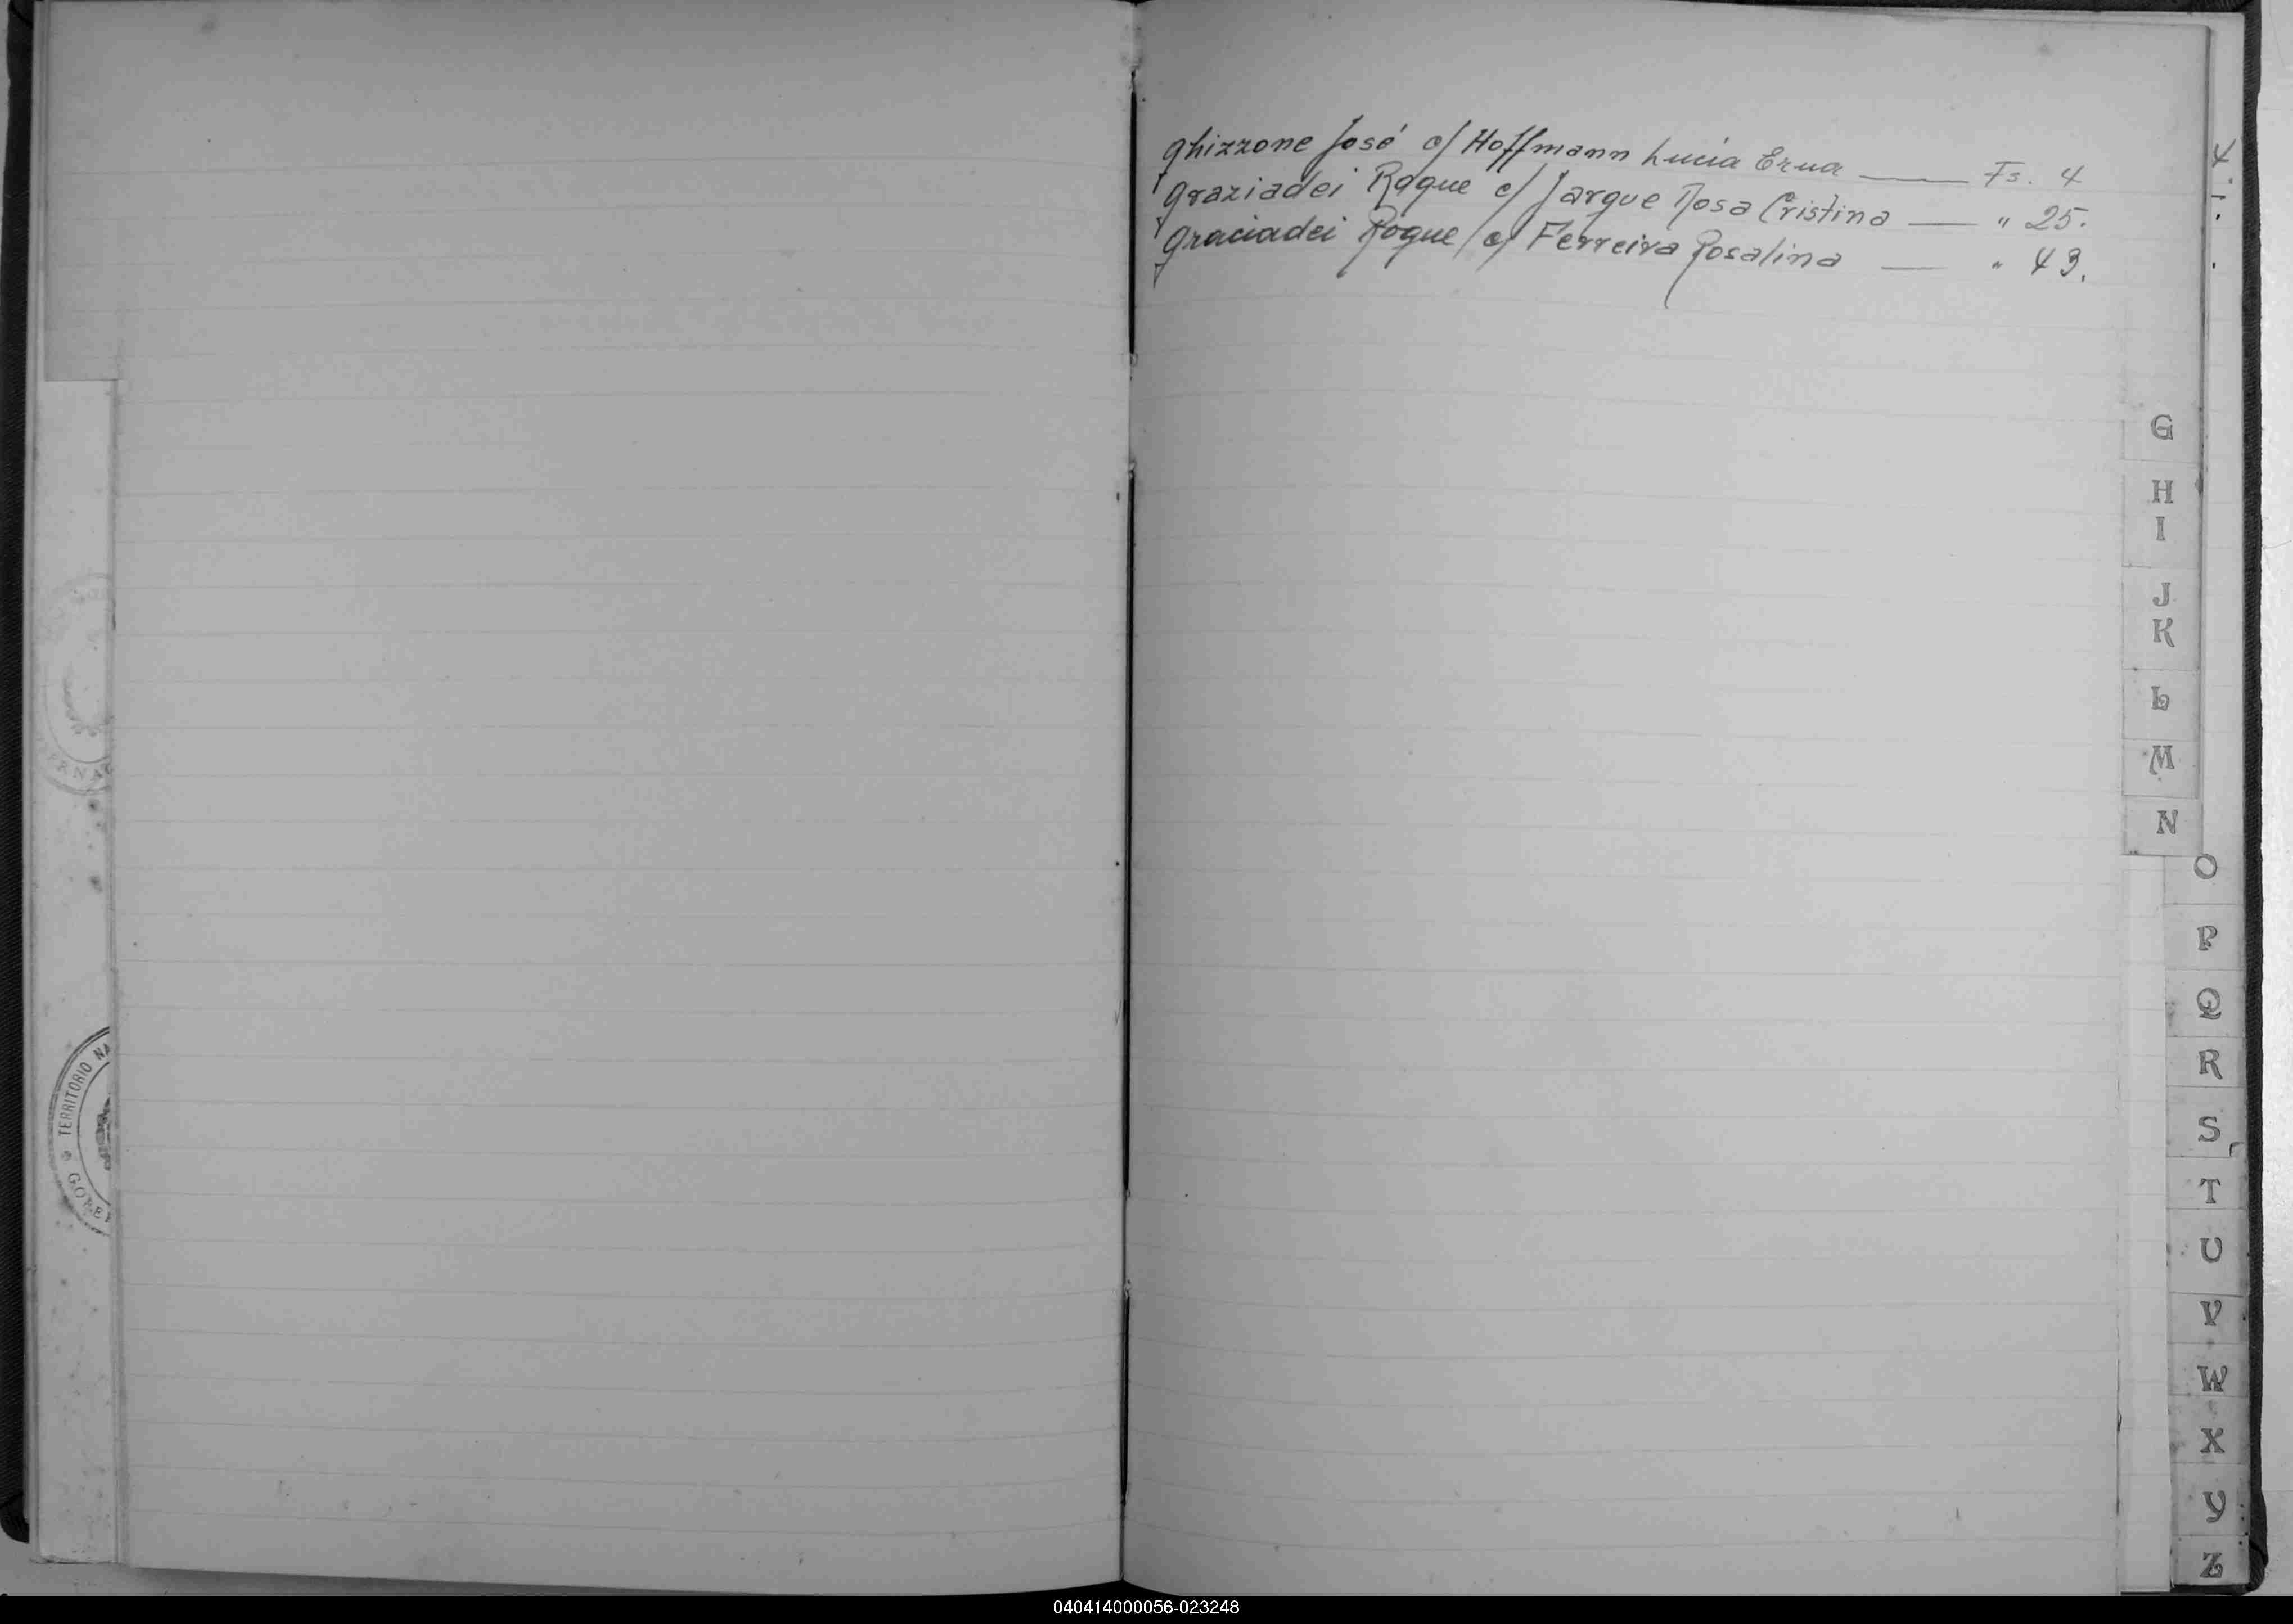 Ghizzone José c/ Hoffmann Lucia Erna —— Fs. 4
Graziadei Roque c/ Jargue Rosa Cristina — " 25.
Graciadei Roque c/ Ferreira Rosalina — " 43.
4
G
H
I
J
K
L
M
N
O
P
Q
R
S
T
U
V
W
X
Y
Z
TERRITORIO NA
GOBE
ERNA
040414000056-023248